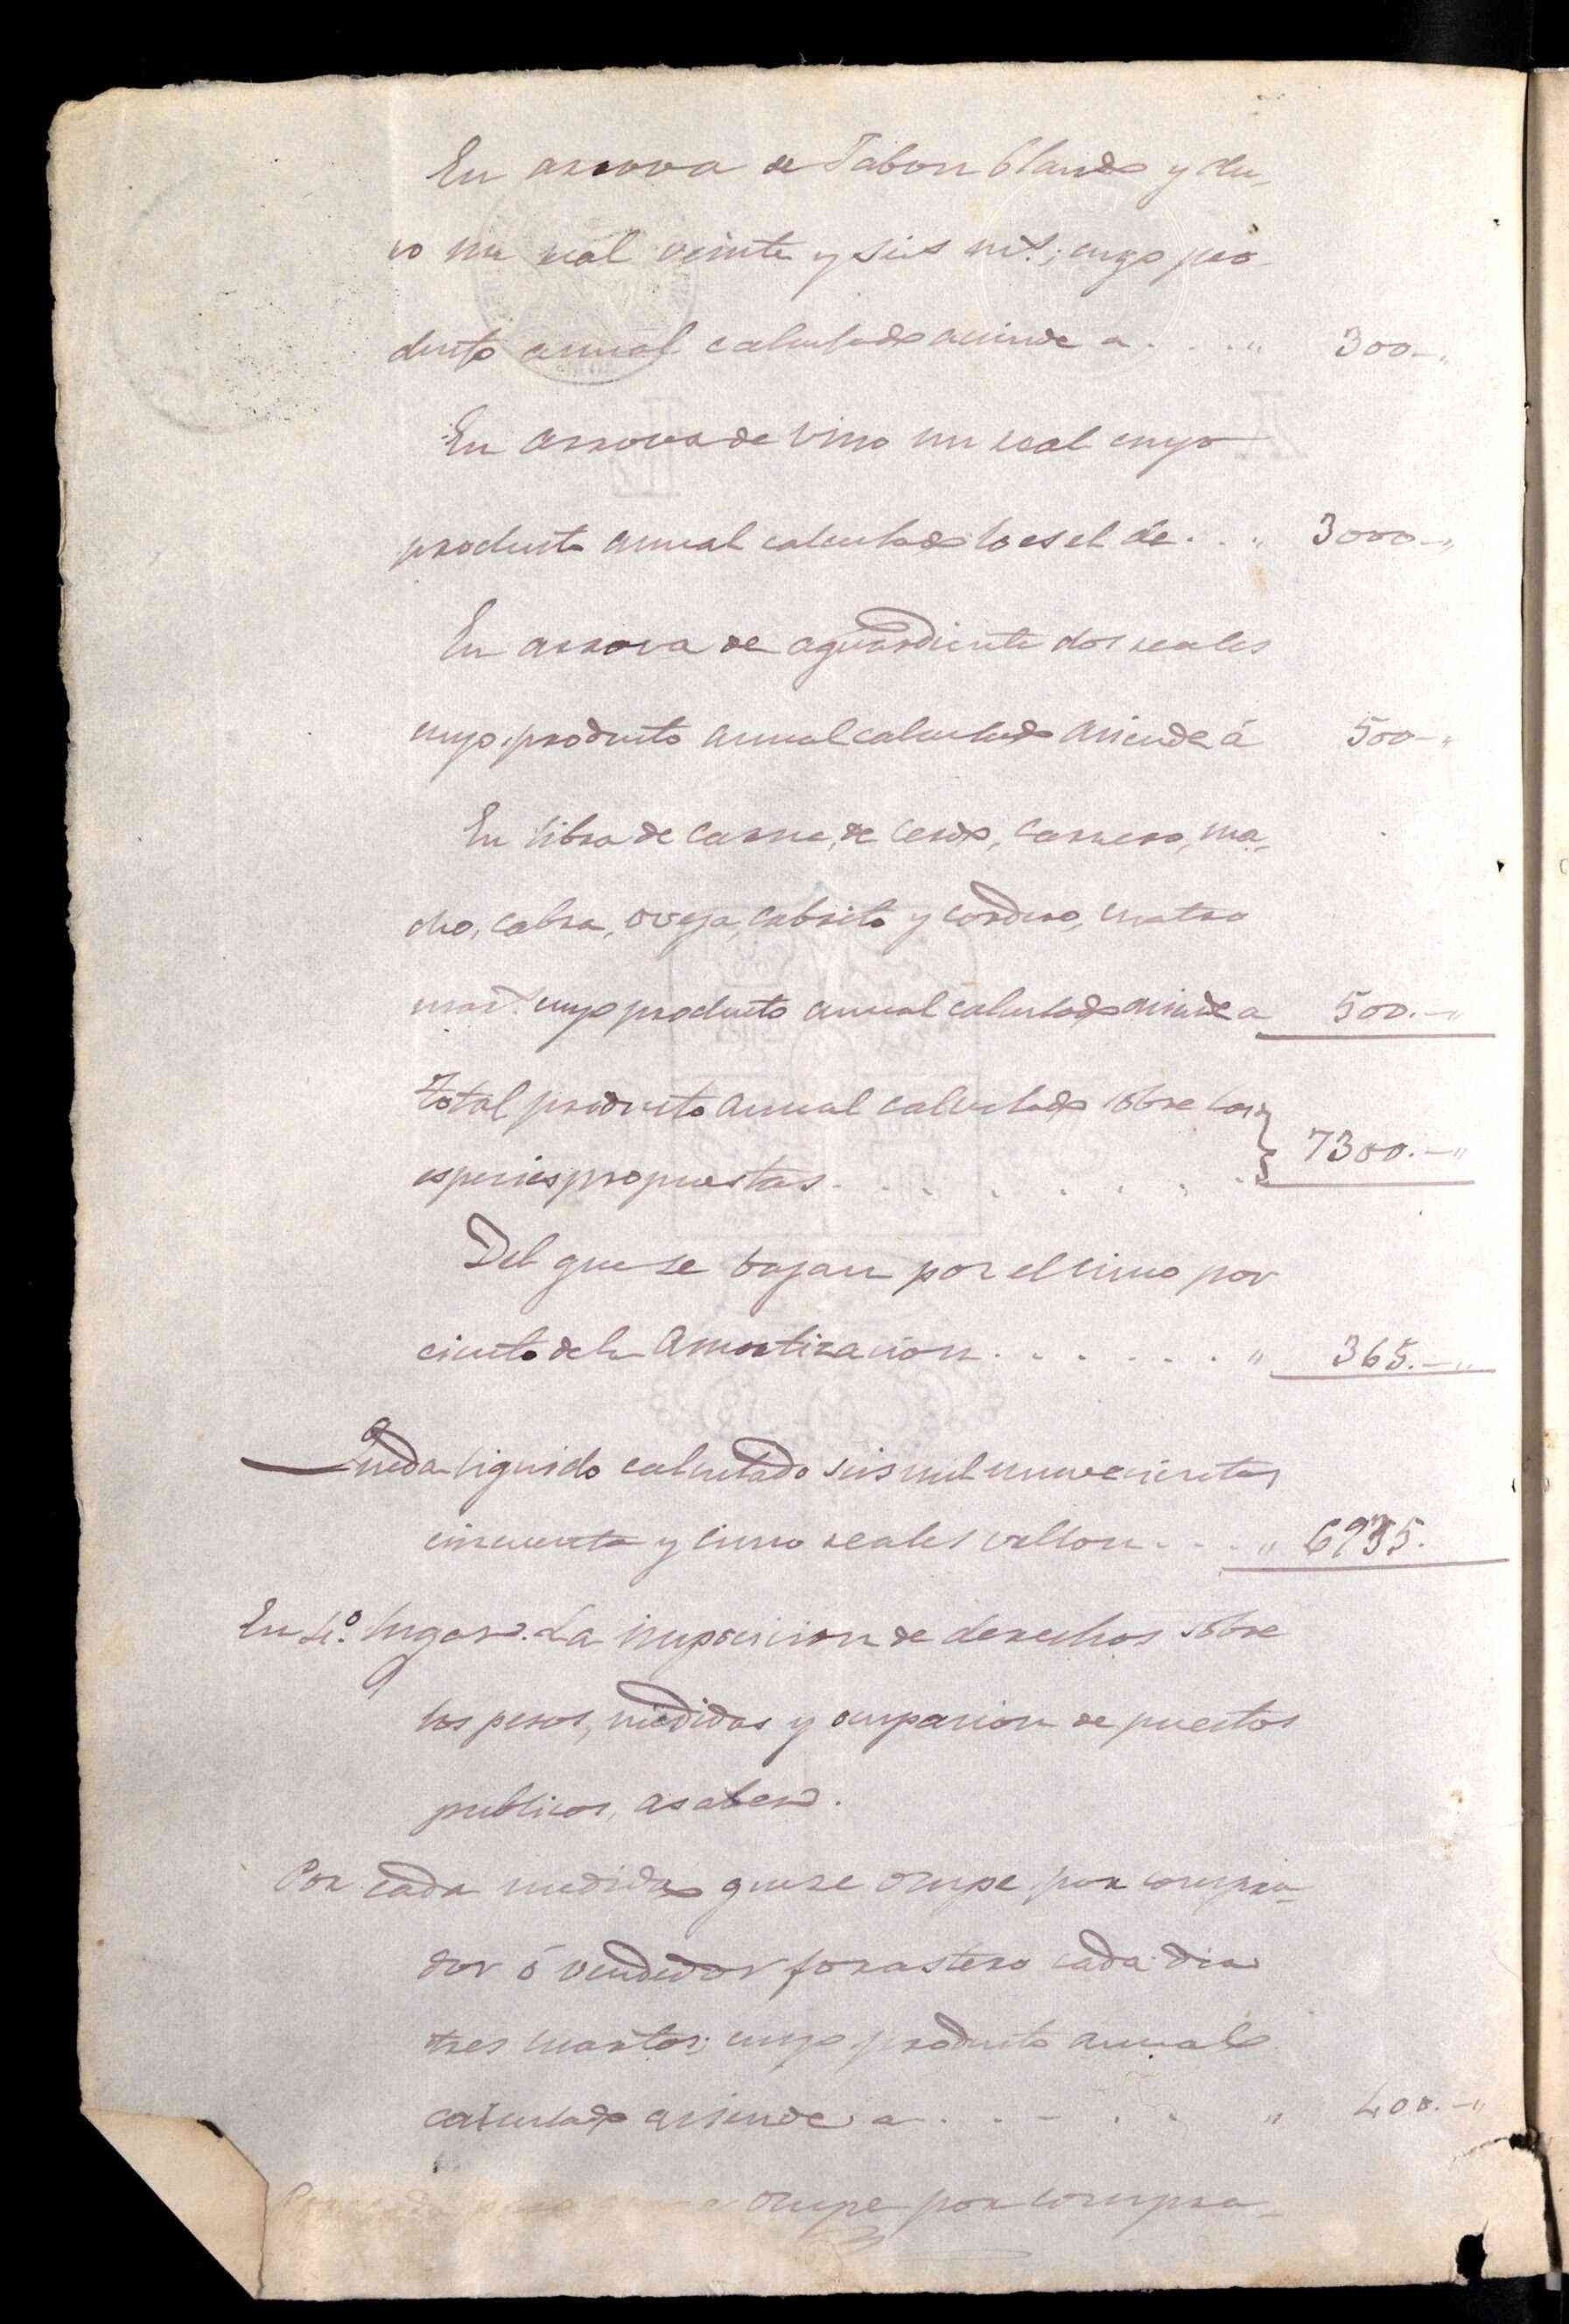 En arrova de Jabon blando y du-
ro un real veinte y seis mrs; cuyo pro
ducto anual calculado aciende a . . . " 300-"
En arrova de vino un real cuyo
producto anual calculado lo es el de . . " 3000-"
En arrova de aguardiente dos reales
cuyo producto anual calculado aciende á 500-"
En libra de carne, de cerdo, carnero, ma-
cho, cabra, oveja, cabrito y cordero, cuatro
mars cuyo producto anual calculado aciende a 500.-"
Total producto anual calculado sobre las
especies propuestas . . . . . . . . 7300.-"
Del que se bajan por el cinco por
ciento de la Amortizacion . . . . . . " 365.-"
Queda liquido calculado seis mil nuevecientos
cincuenta y cinco reales vellon . . . " 6935.
En 4.º lugar. La imposicion de derechos sobre
los pesos, medidas y ocupacion de puestos
publicos, asaber.
Por cada medida que se ocupe por compra-
dor ó vendedor forastero cada dia
tres cuartos; cuyo producto anual
calculado asiende a . . - . . " 400.-"
Por cada ocupe por compra-